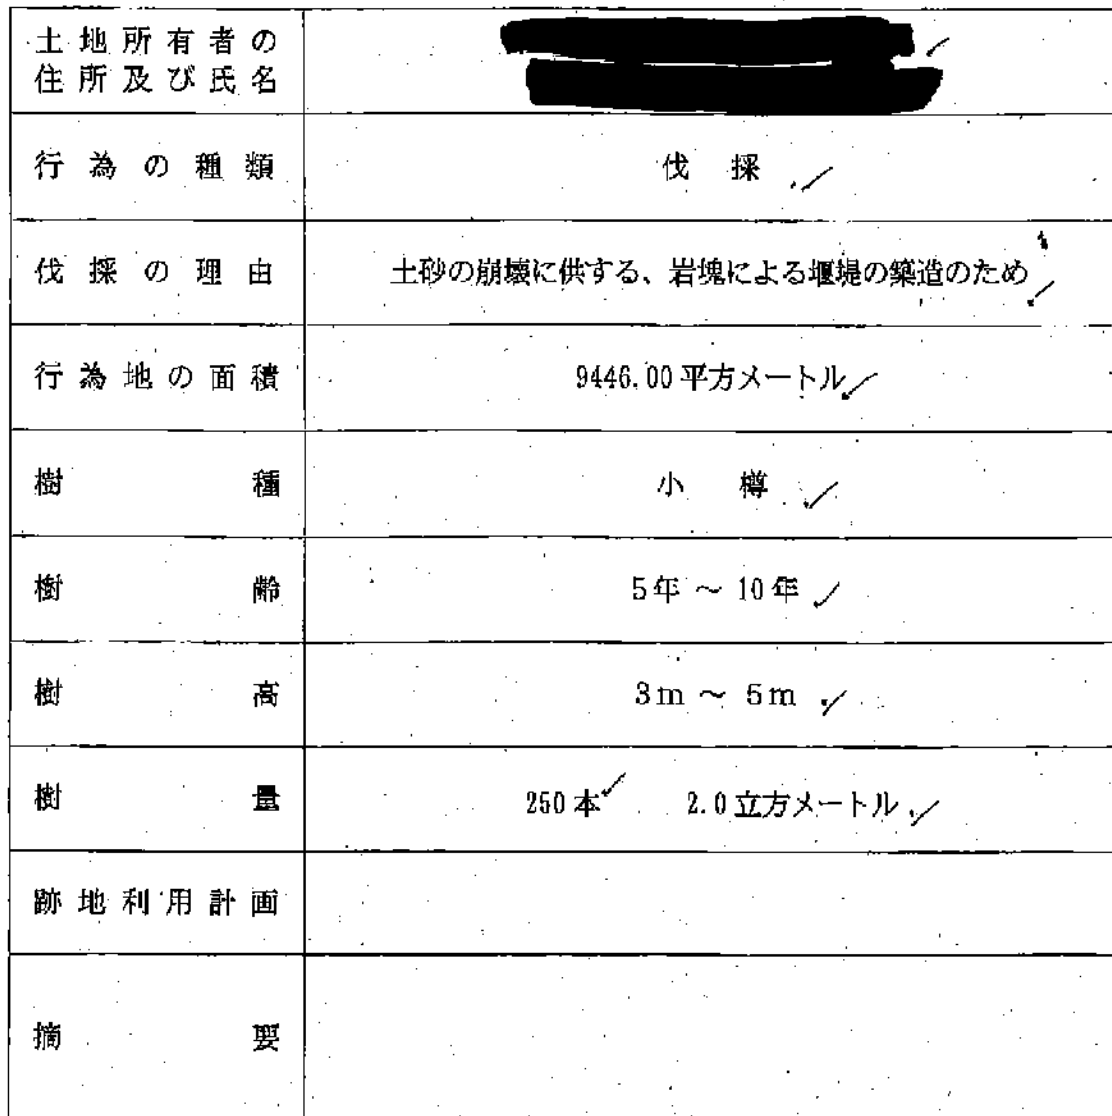 土地所有者の
住所及び氏名
行為の種類 伐採
伐採の理由 土砂の崩壊に供する、岩塊による堰堤の築造のため
行為地の面積 9446.00平方メートル
樹種 小樽
樹齢 5年～10年
樹高 3m～5m
樹量 250本 2.0立方メートル
跡地利用計画
摘要